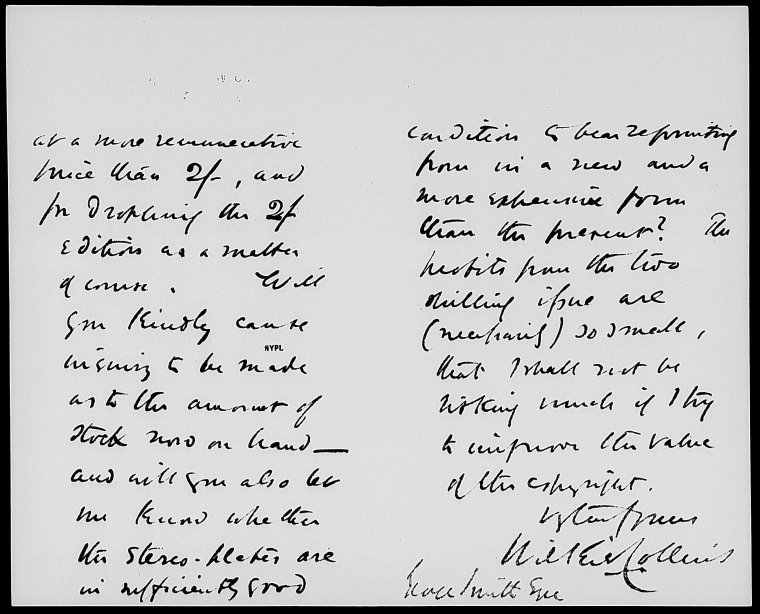 at a more remunerative
price than 2/-, and
for dropping the 2/-
edition as a matter
of course. Will
you kindly cause
inquiry to be made
NYPL
as to the amount of
stock now on hand —
and will you also let
me know whether
the stereo-plates are
in sufficiently good
condition to bear reprinting
from in a new and a
more expensive form
than the present? The
profits from the two
shilling issue are
(necessarily) so small,
that I shall not be
risking much if I try
to improve the value
of the copyright.
Vy truly yours
Wilkie Collins
George Smith Esqre